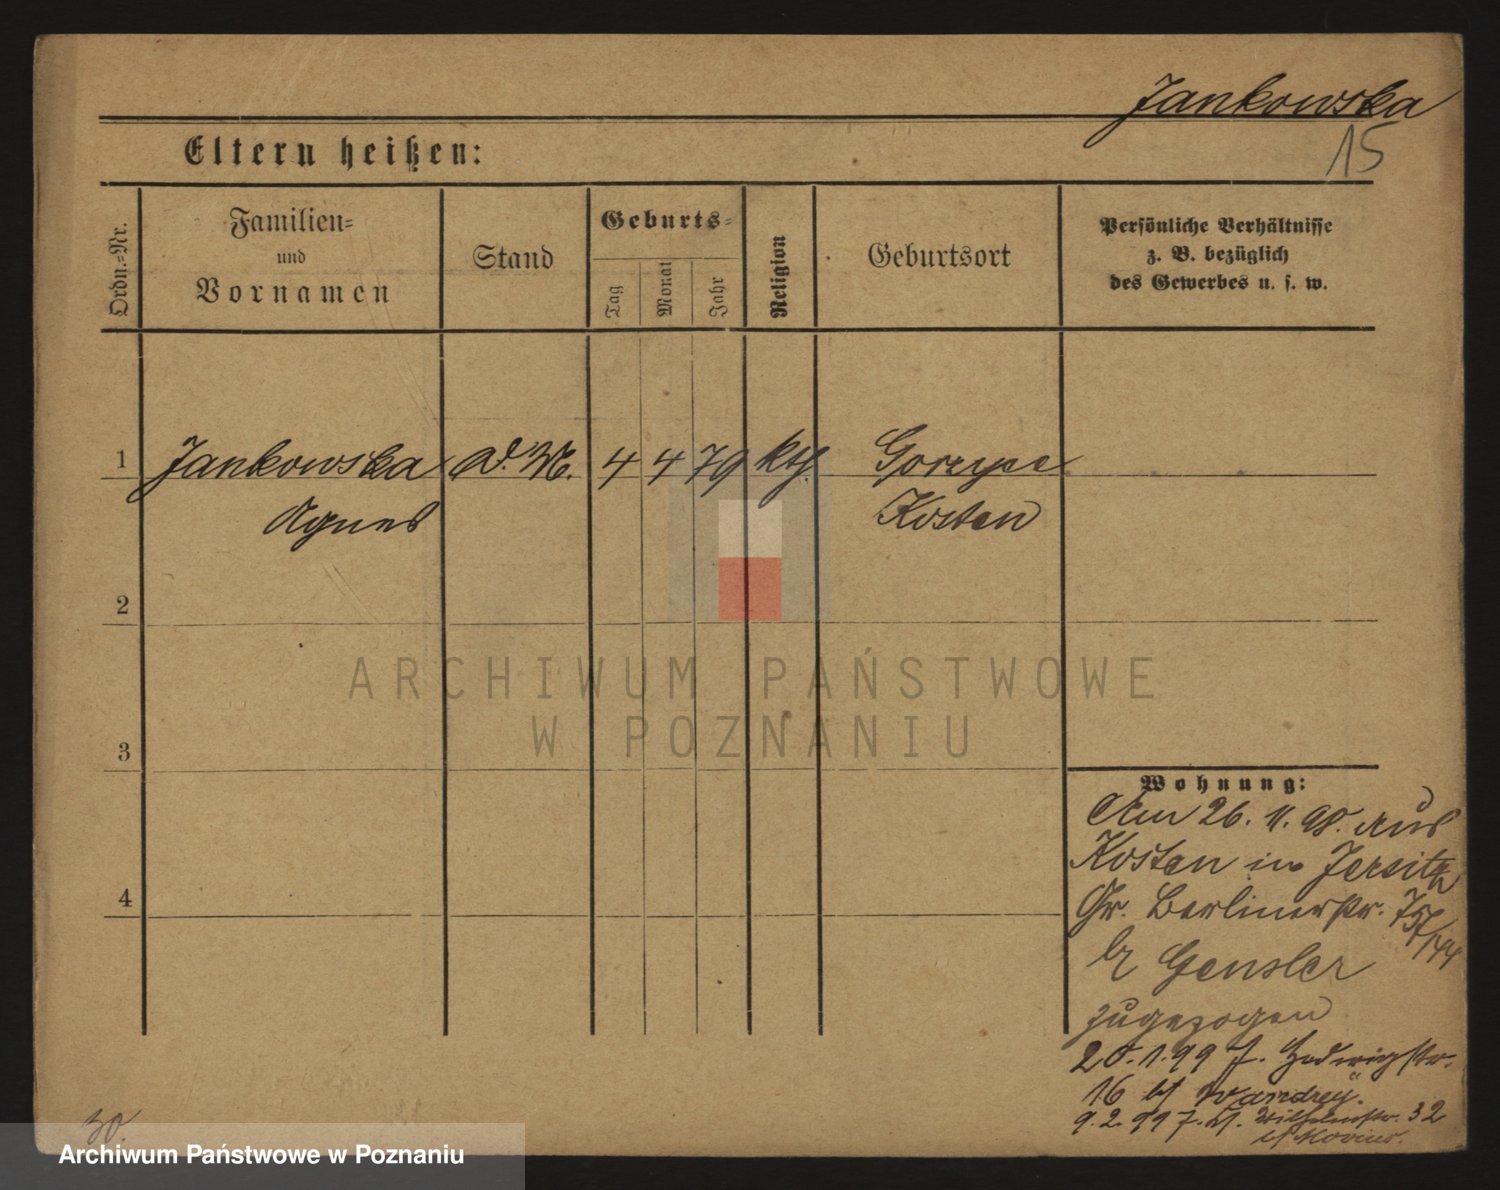 Jankowska
15
Eltern heißen:
Ordn.-Nr.
Familien-
und
Vornamen
Stand
Geburts-
Tag
Monat
Jahr
Religion
Geburtsort
Persönliche Verhältnisse
z. B. bezüglich
des Gewerbes u. s. w.
1 Jankowska D. M. 4 4 79 kth.
Agnes Kosten
2
3
4
ARCHIWUM PAŃSTWOWE
W POZNANIU
Wohnung:
Am 26. 11. 98. aus
Kosten in Jersitz
Gr. Berlinerstr.
Gensler
zugezogen
20. 1. 99 Hedwigstr.
16 bf Wandrey.
9. 2. 99 Wilhelmstr. 32
30.
Archiwum Państwowe w Poznaniu